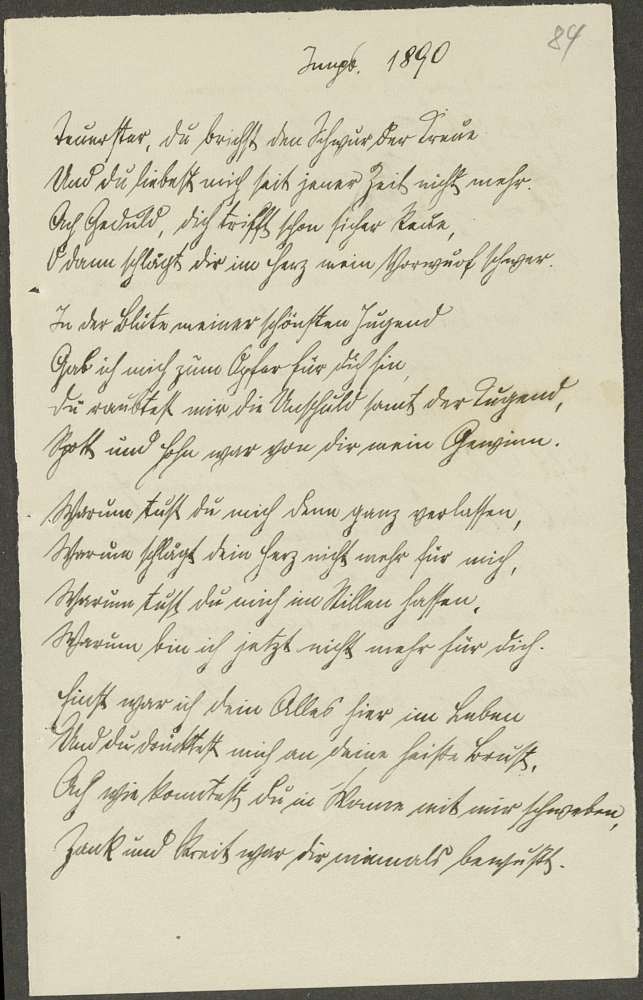 84
Innsb. 1890
Teuerster, du brichst den Schwur der Treue
Und du liebest mich seit jener Zeit nicht mehr.
Ach Geduld, dich trifft schon sicher Reue,
O dann schlägt dir im Herz mein Vorwurf schwer.
In der Blüte meiner schönsten Jugend
Gab ich mich zum Opfer für dich hin,
Du raubtest mir die Unschuld samt der Tugend,
Spott und Hohn war von dir mein Gewinn.
Warum tust du mich denn ganz verlassen,
Warum schlägt dein Herz nicht mehr für mich,
Warum tust du mich im Stillen hassen,
Warum bin ich jetzt nicht mehr für dich.
Einst war ich dein Alles hier im Leben
Und du drücktest mich an deine heiße Brust,
Ach wie konntest du in Wonne mit mir schweben,
Zank und Streit war dir niemals bewußt.